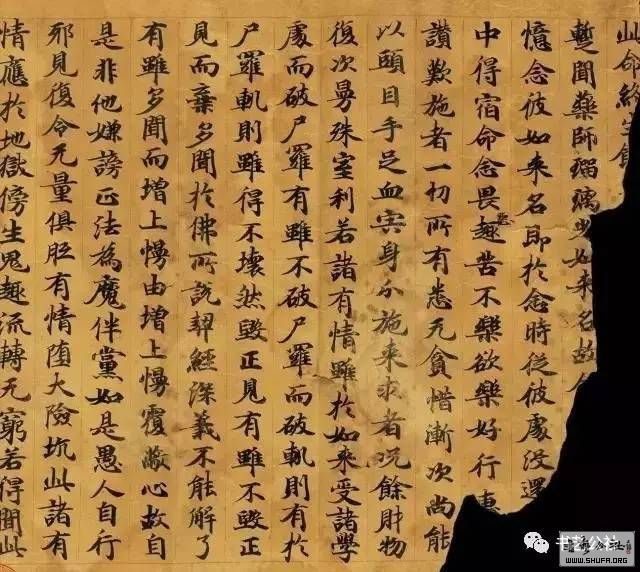 此命終生
暫聞藥師瑠璃光如来名故
憶念彼如来名即於念時從彼處没還
中得宿命念畏惡趣苦不樂欲樂好行惠
讚歎施者一切所有悉无貪惜漸次尚能
以頭目手足血肉身分施来求者况餘財物
復次曼殊室利若諸有情雖於如来受諸學
處而破尸羅有雖不破尸羅而破軌則有於
尸羅軌則雖得不壞然毀正見有雖不毀正
見而棄多聞於佛所說契經深義不能解了
有雖多聞而增上慢由增上慢覆蔽心故自
是非他嫌謗正法為魔伴黨如是愚人自行
邪見復令无量俱胝有情墮大險坑此諸有
情應於地獄傍生鬼趣流轉无窮若得聞此
书艺公社
WWW.SHUFA.ORG